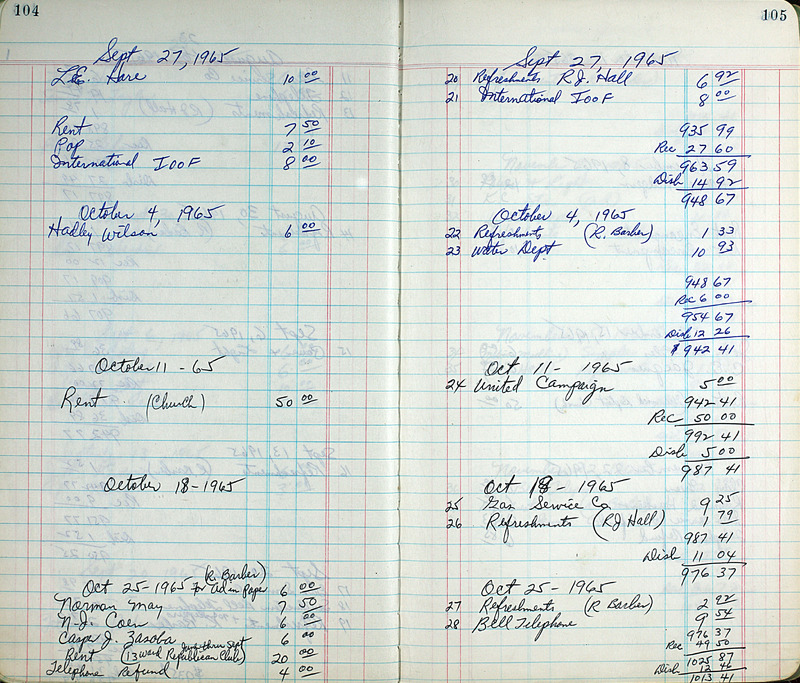 104
Sept 27, 1965
L.E. Hare 10 00
Rent 7 50
Pop 2 10
International IOOF 8 00
October 4, 1965
Hadley Wilson 6 00
October 11 - 65
Rent (Church) 50 00
October 18-1965
(R. Barber)
Oct 25-1965 for ad in paper 6 00
Norman May 7 50
N.J. Coen 6 00
Casper J. Zasoba 6 00
June thru Sept
Rent (13 ward Republican Club) 20 00
Telephone Refund 4 00
105
Sept 27, 1965
20 Refreshments R.J. Hall 6 92
21 International IOOF 8 00
935 99
Rec 27 60
963 59
Disb 14 92
948 67
October 4, 1965
22 Refreshments (R. Barber) 1 33
23 Water Dept 10 93
948 67
Rec 6 00
954 67
Disb 12 26
$ 942 41
Oct 11 - 1965
24 United Campaign 5 00
942 41
Rec 50 00
992 41
Disb 5 00
987 41
Oct 18 - 1965
25 Gas Service Co 9 25
26 Refreshments (RJ Hall) 1 79
987 41
Disb 11 04
976 37
Oct 25 - 1965
27 Refreshments (R Barber) 2 92
28 Bell Telephone 9 54
976 37
Rec 49 50
1025 87
Disb 12 46
1013 41